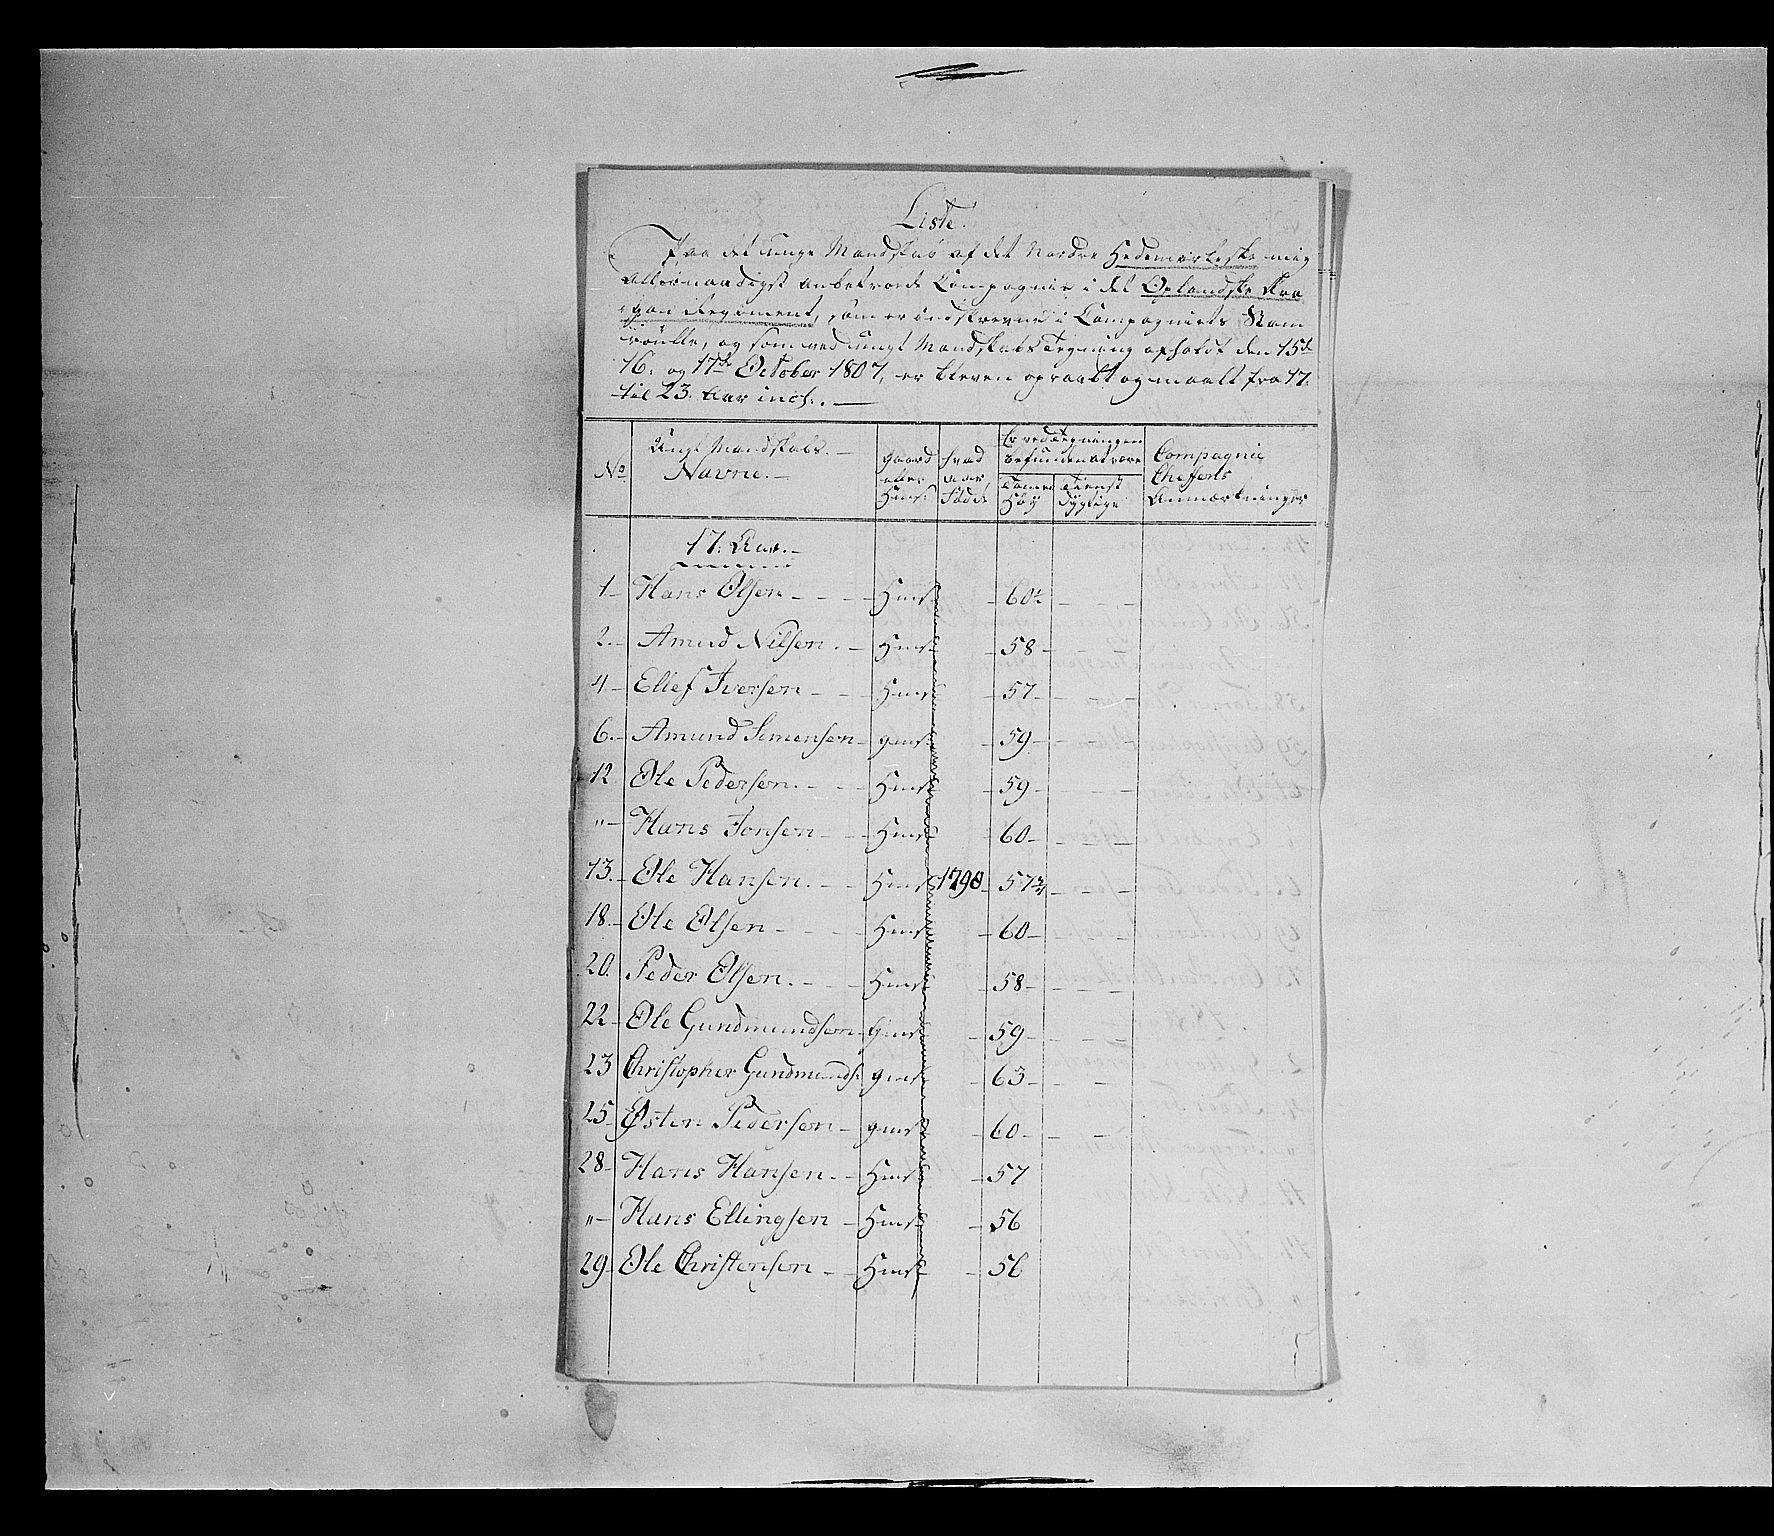 Liste.
Paa det unge Mandskab af det Nordre Hedemarkeske mig
allernaadigst anbetroede Compagnie i det Oplandske Dra
gon Regiment, som er indskreven i Compagniets Stam
roulle, og som ved ungt Mandskabs Tegning afholdt den 15de
16. og 17de October 1807, er bleven opraabt og maalt fra 17.
til 23. Aar incl:. —
No
Ungt Mandskabs. —
Navne. —
gaard
eller
Huus:
hvad
Aar,
Fødde
Er ved Tegningen
befunden at være
Tomer
Høy
Tienst
dygtige
Compagnie
Cheffens
Anmærkninger
17. Aar. —
1 — Hans Olsen — Huus — 60½ —
2. — Amund Nilsen. — Huus — 58 —
4 — Ellef Iversen — Huus — 57 —
6. — Amund Simensen — gaus: — 59 —
12 Ole Pedersen. — Huus — 59 —
" — Hans Jonsen — Huus — 60 —
13. — Ole Hansen. — Huus 1790 — 57¾ —
18. — Ole Olsen — Huus — 60 —
20. Peder Olsen. — Huus — 58 —
22 — Ole Gundmundsen — Huus — 59 —
23 Christopher Gundmunds: gaus — 63 —
25 Østen Pedersen — gaus — 60 —
28 — Hans Hansen. — Huus — 57
" — Hans Ellingsen — Huus — 56
29. Ole Christensen — Huus — 56